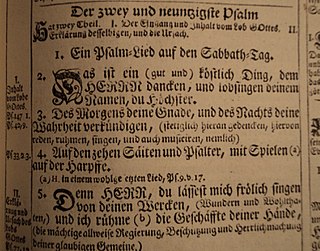 Der zwey und neuntzigste Psalm
Hat zwey Theil. I. Der Eingang und Inhalt vom Lob GOttes. II.
Erklärung desselbigen, und die Ursach.
1. Ein Psalm-Lied auf den Sabbath-Tag.
I.
Inhalt
vom Lobe
GOttes.
2. Das ist ein (gut und) köstlich Ding, dem
HERRN dancken, und lobsingen deinem
Namen, du Höchster.
3. Des Morgens deine Gnade, und des Nachts deine
Wahrheit verkündigen, (stetiglich hieran gedencken, hiervon
reden, rühmen, singen, und auch musiciren, nemlich)
4. Auf den zehen Säiten und Psalter, mit Spielen (a)
auf der Harpffe.
(a) H. in einem wohl
Lied, Ps. 9. v. 17.
II.
5. Denn HERR, du lässest mich frölich singen
von deinen Wercken, (Wundern und Wohltha-
ten,) und ich rühme (b) die Geschäffte deiner Hände,
(die mächtige allweise Regierung, Beschützung und Herrlichmachung
deiner glaubigen Gemeine.)